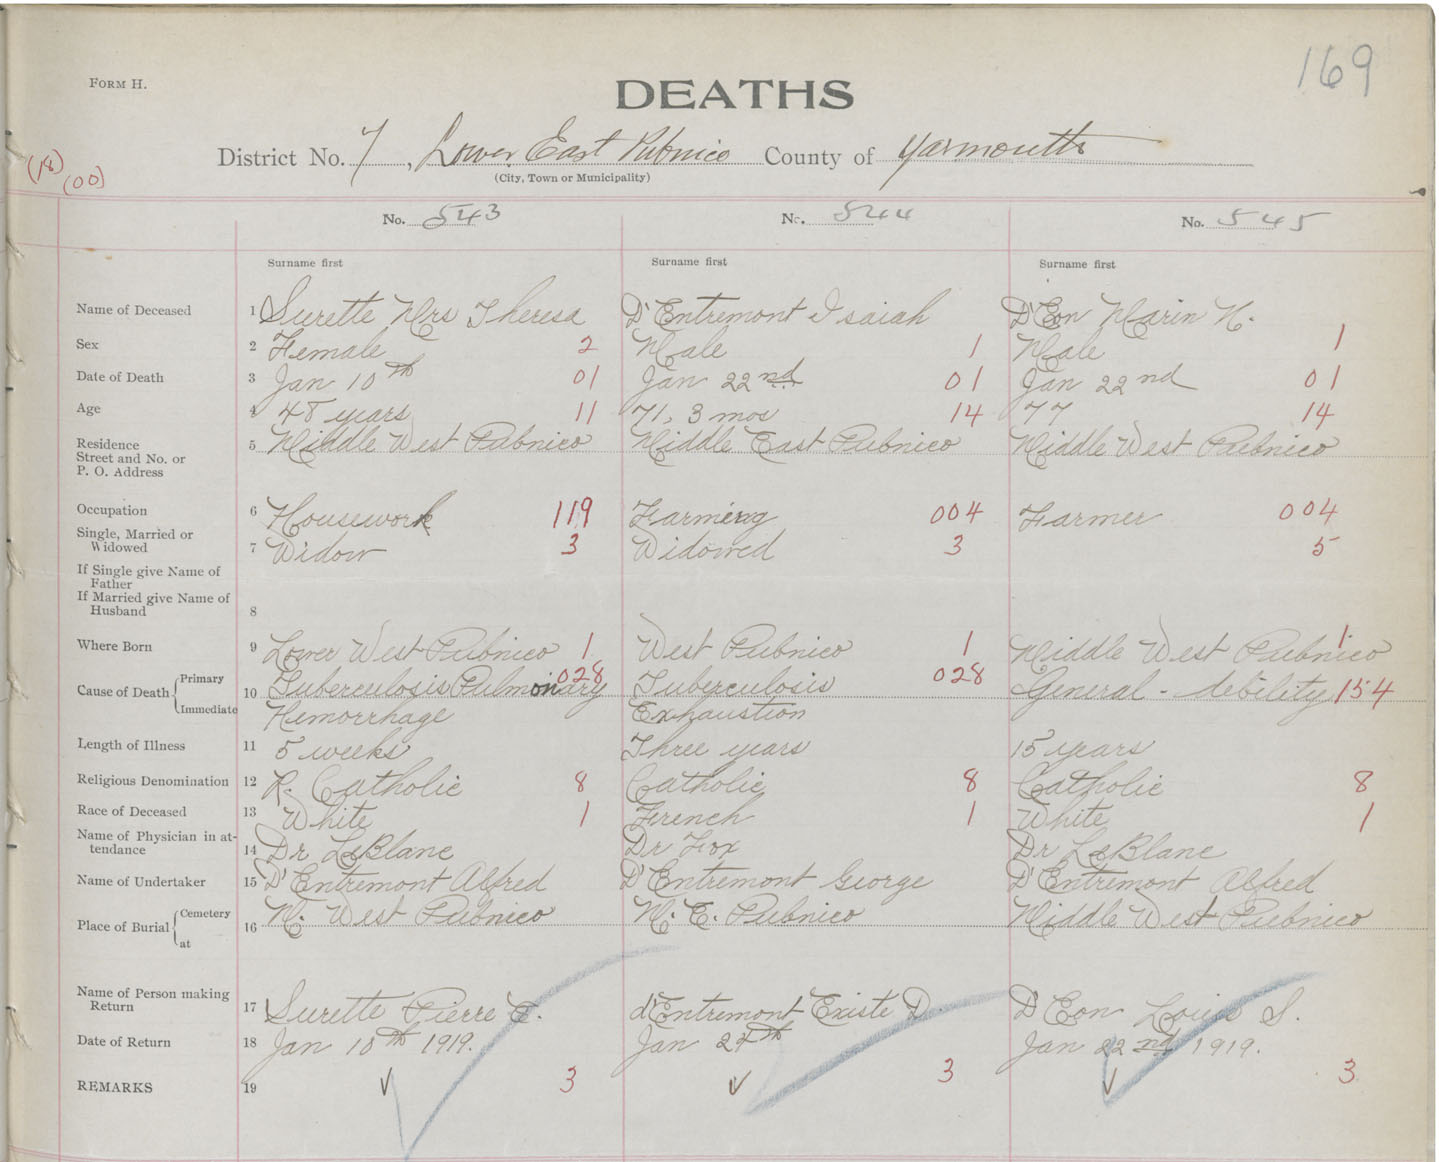 169
FORM H.
DEATHS
District No. 7, Lower East Pubnico County of Yarmouth
(City, Town or Municipality)
(18)
(00)
No. 543 No. 544 No. 545
Surname first Surname first Surname first
Name of Deceased 1 Surette Mrs Theresa D'Entremont Isaiah D'Eon Marin H.
Sex 2 Female 2 Male 1 Male 1
Date of Death 3 Jan 10th 01 Jan 22nd 01 Jan 22nd 01
Age 4 48 years 11 71, 3 mos 14 77 14
Residence
Street and No. or
P. O. Address 5 Middle West Pubnico Middle East Pubnico Middle West Pubnico
Occupation 6 Housework 119 Farming 004 Farmer 004
Single, Married or
Widowed 7 Widow 3 Widowed 3 5
If Single give Name of
Father
If Married give Name of
Husband 8
Where Born 9 Lower West Pubnico 1 West Pubnico 1 Middle West Pubnico 1
Cause of Death Primary 10 Tuberculosis Pulmonary 028 Tuberculosis 028 General - debility 154
Immediate Hemorrhage Exhaustion
Length of Illness 11 5 weeks Three years 15 years
Religious Denomination 12 R. Catholic 8 Catholic 8 Catholic 8
Race of Deceased 13 White 1 French 1 White 1
Name of Physician in at-
tendance 14 Dr LeBlanc Dr Fox Dr LeBlanc
Name of Undertaker 15 D'Entremont Alfred D'Entremont George D'Entremont Alfred
Place of Burial Cemetery
at 16 M. West Pubnico M. E. Pubnico Middle West Pubnico
Name of Person making
Return 17 Surette Pierre E. d'Entremont Existe D. D'Eon Louis S.
Date of Return 18 Jan 10th 1919. Jan 24th Jan 22nd 1919.
REMARKS 19 ✓ 3 ✓ 3 ✓ 3